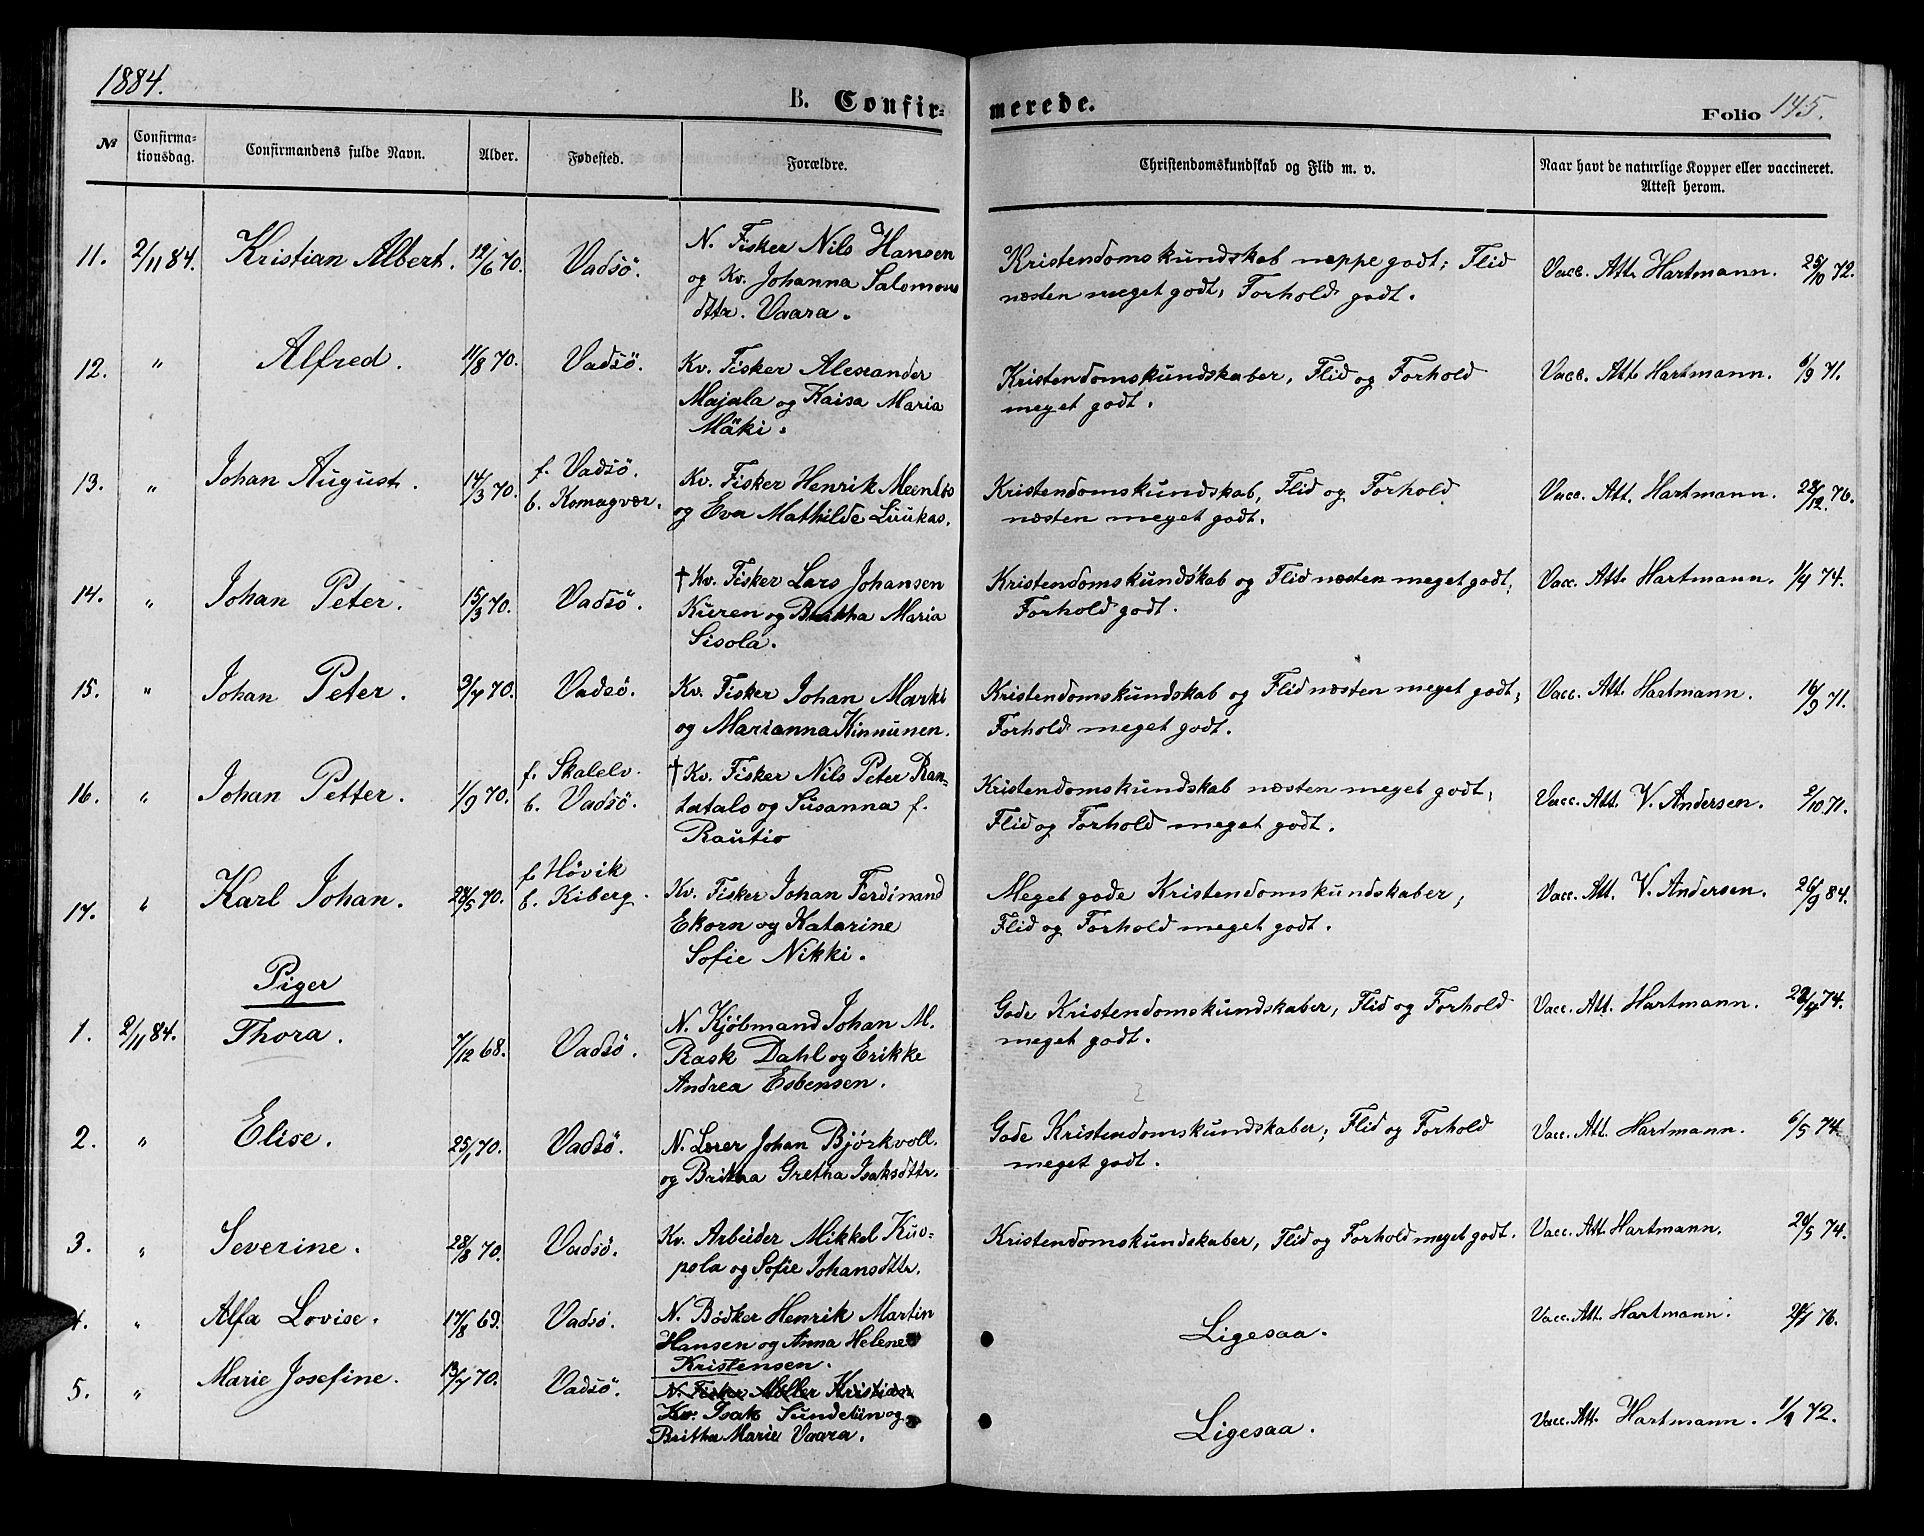 1884.
B. Confirmerede.
Folio 145.
№ Confirmationsdag. Confirmandens fulde Navn. Alder. Fødested. Forældre. Christendomskundskab og Flid m. v. Naar havt de naturlige Kopper eller vaccineret. Attest herom.
11. 2/11 84. Kristian Albert. 12/6 70. Vadsö. N. Fisker Nils Hansen
og Kv. Johanna Salomons
dttr. Vaara.
Kristendomskundskab neppe godt; Flid
næsten meget godt, Forhold godt.
Vacc. Att. Hartmann. 25/10 72.
12. " Alfred. 11/8 70. Vadsö. Kv. Fisker Alexander
Majala og Kaisa Maria
Mäki.
Kristendomskundskaber, Flid og Forhold
meget godt.
Vacc. Att. Hartmann. 6/9 71.
13. " Johan August. 14/3 70. f. Vadsö.
b. Komagvær.
Kv. Fisker Henrik
og Eva Mathilde Luukas.
Kristendomskundskab, Flid og Forhold
næsten meget godt.
Vacc. Att. Hartmann. 28/12 76.
14. " Johan Peter. 15/3 70. Vadsö. † Kv. Fisker Lars Johansen
Kuren og Britha Maria
Sisola.
Kristendomskundskab og Flid næsten meget godt;
Forhold godt.
Vacc. Att. Hartmann. 74.
15. " Johan Peter. 70. Vadsö. Kv. Fisker Johan Marki
og Marianna Kinnunen.
Kristendomskundskab og Flid næsten meget godt;
Forhold meget godt.
Vacc. Att. Hartmann. 16/9 71.
16. " Johan Petter. 1/9 70. f. Skalelv.
b. Vadsö.
† Kv. Fisker Nils Peter Ran-
tatalo og Susanna f.
Rautio
Kristendomskundskab næsten meget godt,
Flid og Forhold meget godt.
Vacc. Att. V. Andersen. 2/10 71.
17. " Karl Johan. 28/5 70. f. Hövik
b. Kiberg.
Kv. Fisker Johan Ferdinand
Ekorn og Katarine
Sofie Nikki.
Meget gode Kristendomskundskaber;
Flid og Forhold meget godt.
Vacc. Att. V. Andersen. 26/9 84.
Piger
1. 2/11 84. Thora. 7/12 68. Vadsö. N. Kjöbmand Johan M.
Rask Dahl og Erikke
Andrea Esbensen.
Gode Kristendomskundskaber, Flid og Forhold
meget godt.
Vacc. Att. Hartmann. 74.
2. " Elise. 25/1 70. Vadsö. N. Lærer Johan Bjórkvoll
og Britha Gretha Isaksdttr.
Gode Kristendomskundskaber; Flid og Forhold
meget godt.
Vacc. Att. Hartmann. 6/5 74.
3. " Severine. 28/8 70. Vadsö. Kv. Arbeider Mikkel Kuo-
pola og Sofie Johansdttr.
Kristendomskundskaber, Flid og Forhold meget godt.
Vacc. Att. Hartmann. 20/5 74.
4. " Alfa Lovise. 17/8 69. Vadsö. N. Bödker Henrik Martin
Hansen og Anna Helene
Kristensen.
Ligesaa.
Vacc. Att. Hartmann. 76.
5. " Marie Josefine. 70. Vadsö. N. Fisker Möller Kristian
Kv. Isak Sundelin og
Britha Marie Vaara.
Ligesaa.
Vacc. Att. Hartmann. 72.